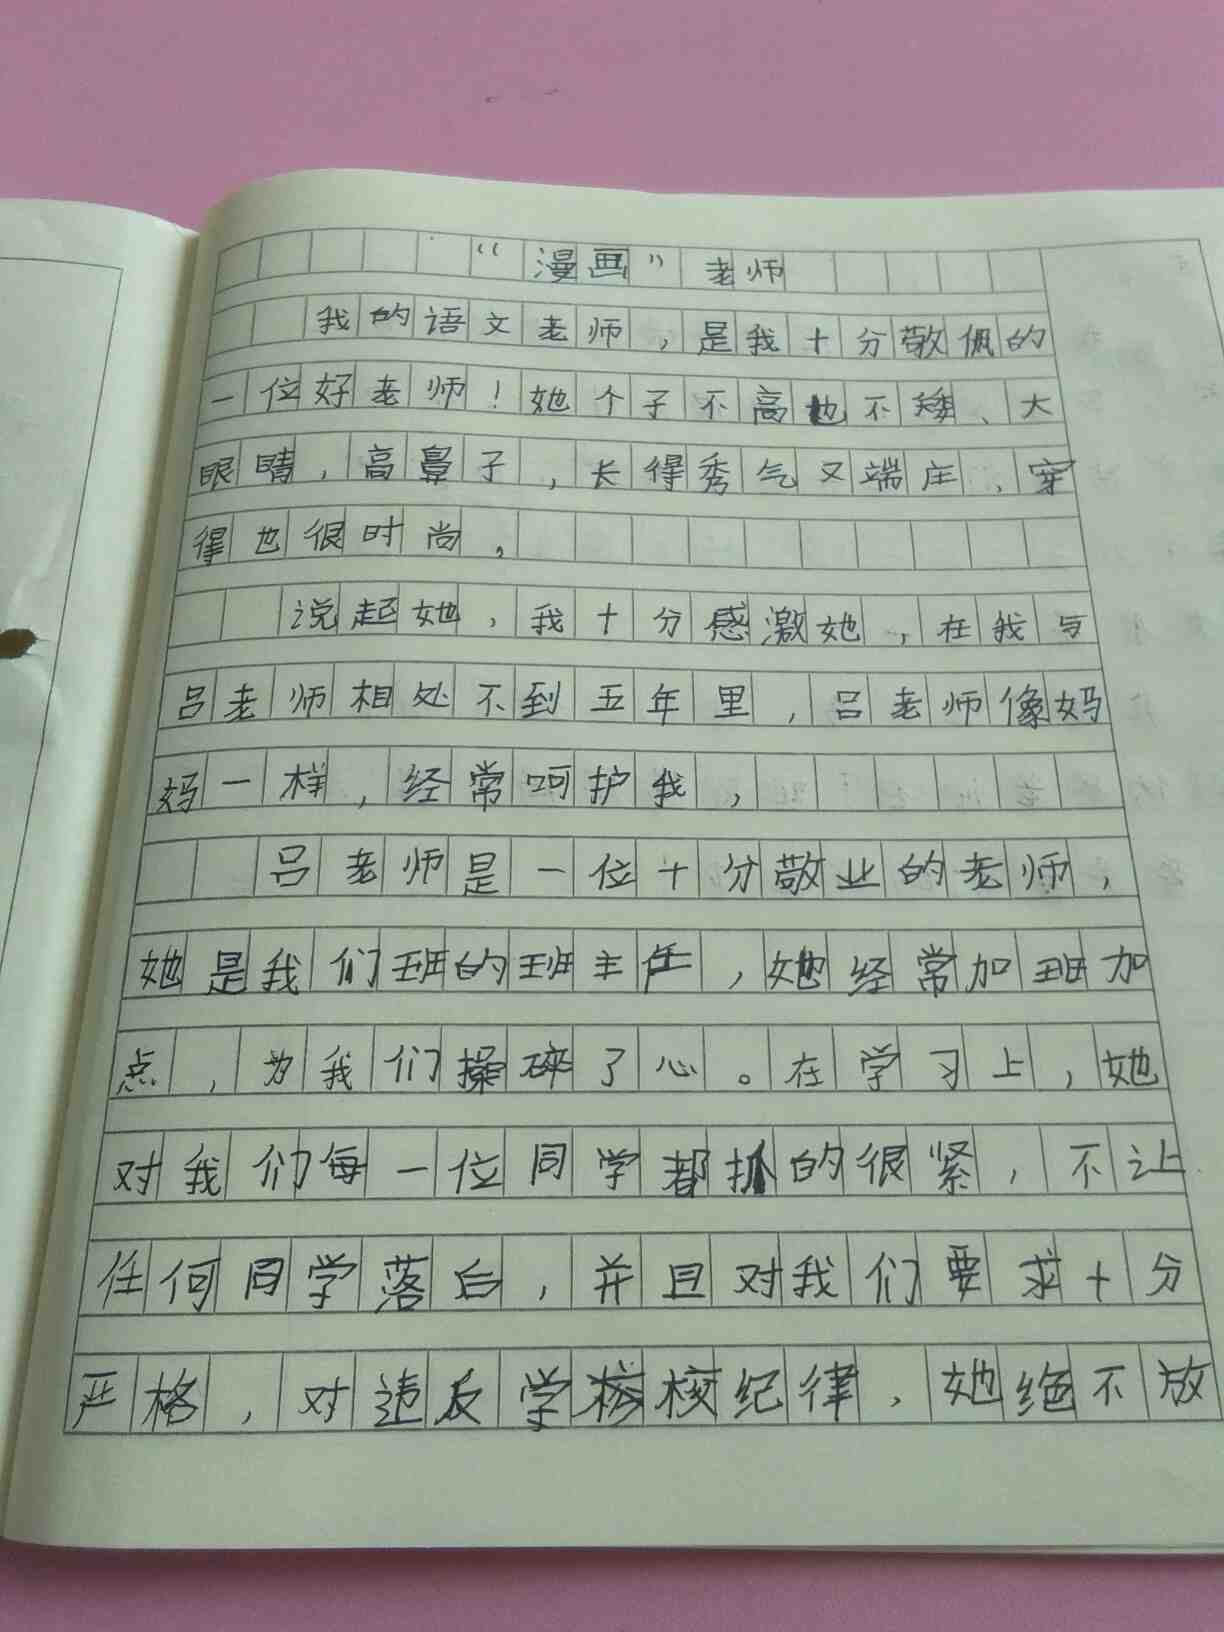 “漫画”老师
我的语文老师，是我十分敬佩的
一位好老师！她个子不高也不矮、大
眼睛，高鼻子，长得秀气又端庄，穿
得也很时尚，
说起她，我十分感激她，在我与
吕老师相处不到五年里，吕老师像妈
妈一样，经常呵护我，
吕老师是一位十分敬业的老师，
她是我们班的班主任，她经常加班加
点，为我们操碎了心。在学习上，她
对我们每一位同学都抓的很紧，不让
任何同学落后，并且对我们要求十分
严格，对违反学校纪律，她绝不放